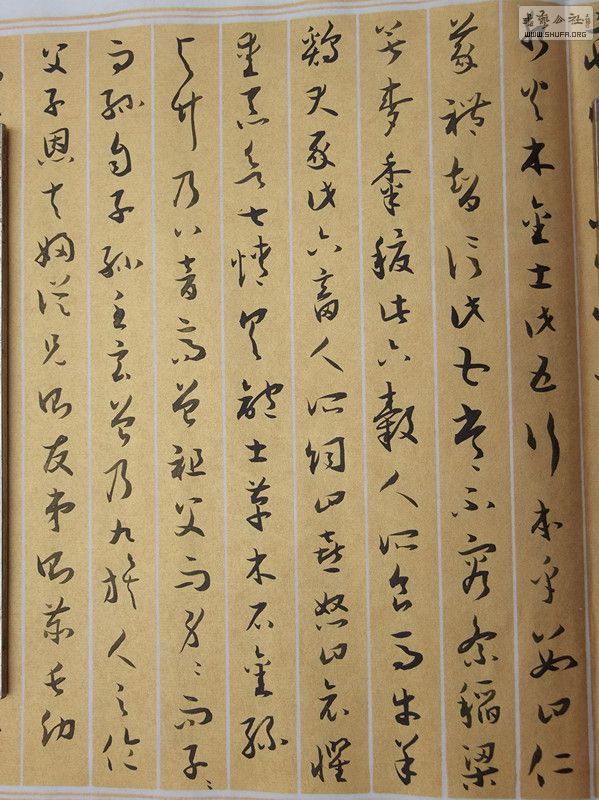 水火木金土此五行本乎數曰仁
義禮智信此五常不容紊稻粱
菽麥黍稷此六穀人所食馬牛羊
雞犬豕此六畜人所飼曰喜怒曰哀懼
愛惡欲七情具匏土革木石金絲
與竹乃八音高曾祖父而身〻而子〻
而孫自子孫至玄曾乃九族人之倫
父子恩夫婦從兄則友弟則恭長幼
書藝公社
WWW.SHUFA.ORG